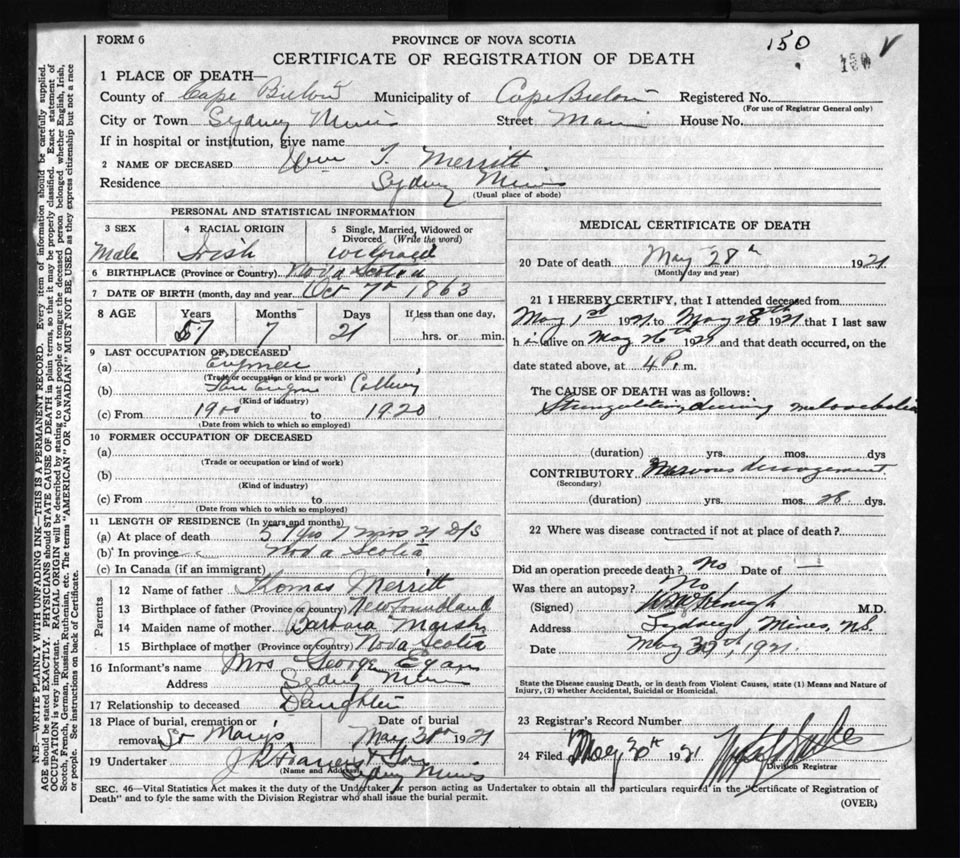 FORM 6
PROVINCE OF NOVA SCOTIA
150
CERTIFICATE OF REGISTRATION OF DEATH
1 PLACE OF DEATH—
County of Cape Breton Municipality of Cape Breton Registered No.
(For use of Registrar General only)
City or Town Sydney Mines Street Main House No.
If in hospital or institution, give name
2 NAME OF DECEASED Wm T. Merritt
Residence Sydney Mines
(Usual place of abode)
PERSONAL AND STATISTICAL INFORMATION
3 SEX 4 RACIAL ORIGIN 5 Single, Married, Widowed or Divorced (Write the word)
Male Irish
6 BIRTHPLACE (Province or Country) Nova Scotia
7 DATE OF BIRTH (month, day and year) Oct 7th 1863
8 AGE Years Months Days If less than one day,
57 7 21 hrs. or min.
9 LAST OCCUPATION OF DECEASED
(a) Engineer
(Trade or occupation or kind or work)
(b) Colliery
(Kind of industry)
(c) From 1900 to 1920
(Date from which to which so employed)
10 FORMER OCCUPATION OF DECEASED
(a)
(Trade or occupation or kind of work)
(b)
(Kind of industry)
(c) From to
(Date from which to which so employed)
11 LENGTH OF RESIDENCE (In years and months)
(a) At place of death 57 yrs 7 mos 21 D/s
(b) In province Nova Scotia
(c) In Canada (if an immigrant)
Parents
12 Name of father Thomas Merritt
13 Birthplace of father (Province or country) Newfoundland
14 Maiden name of mother Barbara Marsh
15 Birthplace of mother (Province or country) Nova Scotia
16 Informant's name Mrs George Egan
Address Sydney Mines
17 Relationship to deceased Daughter
18 Place of burial, cremation or removal St Mary's Date of burial May 31st 1921
19 Undertaker
(Name and Address) Sydney Mines
MEDICAL CERTIFICATE OF DEATH
20 Date of death May 28th 1921
(Month day and year)
21 I HEREBY CERTIFY, that I attended deceased from
May 1st 1921 to May 28th 1921 that I last saw
h im alive on May 26th 1921 and that death occurred, on the
date stated above, at 4 P. m.
The CAUSE OF DEATH was as follows:
Strangulation during melancholia
(duration) yrs. mos. dys
CONTRIBUTORY Nervous derangement
(Secondary)
(duration) yrs. mos. 28 dys.
22 Where was disease contracted if not at place of death?
Did an operation precede death? No Date of —
Was there an autopsy? No
(Signed) M.D.
Address Sydney Mines, N.S.
Date May 1921.
State the Disease causing Death, or in death from Violent Causes, state (1) Means and Nature of Injury, (2) whether Accidental, Suicidal or Homicidal.
23 Registrar's Record Number
24 Filed May 30th 1921
Division Registrar
SEC. 46—Vital Statistics Act makes it the duty of the Undertaker or person acting as Undertaker to obtain all the particulars required in the "Certificate of Registration of
Death" and to fyle the same with the Division Registrar who shall issue the burial permit.
(OVER)
N.B.—WRITE PLAINLY WITH UNFADING INK—THIS IS A PERMANENT RECORD. Every item of information should be carefully supplied.
AGE should be stated EXACTLY. PHYSICIANS should STATE CAUSE OF DEATH in plain terms, so that it may be properly classified. Exact statement of
OCCUPATION is very important. RACIAL ORIGIN will be described by stating to what people or tongue the deceased person belonged whether English, Irish,
Scotch, French, German, Russian, Ruthenian, etc. The terms "AMERICAN" OR "CANADIAN" MUST NOT BE USED as they express citizenship but not a race
or people. See instructions on back of Certificate.